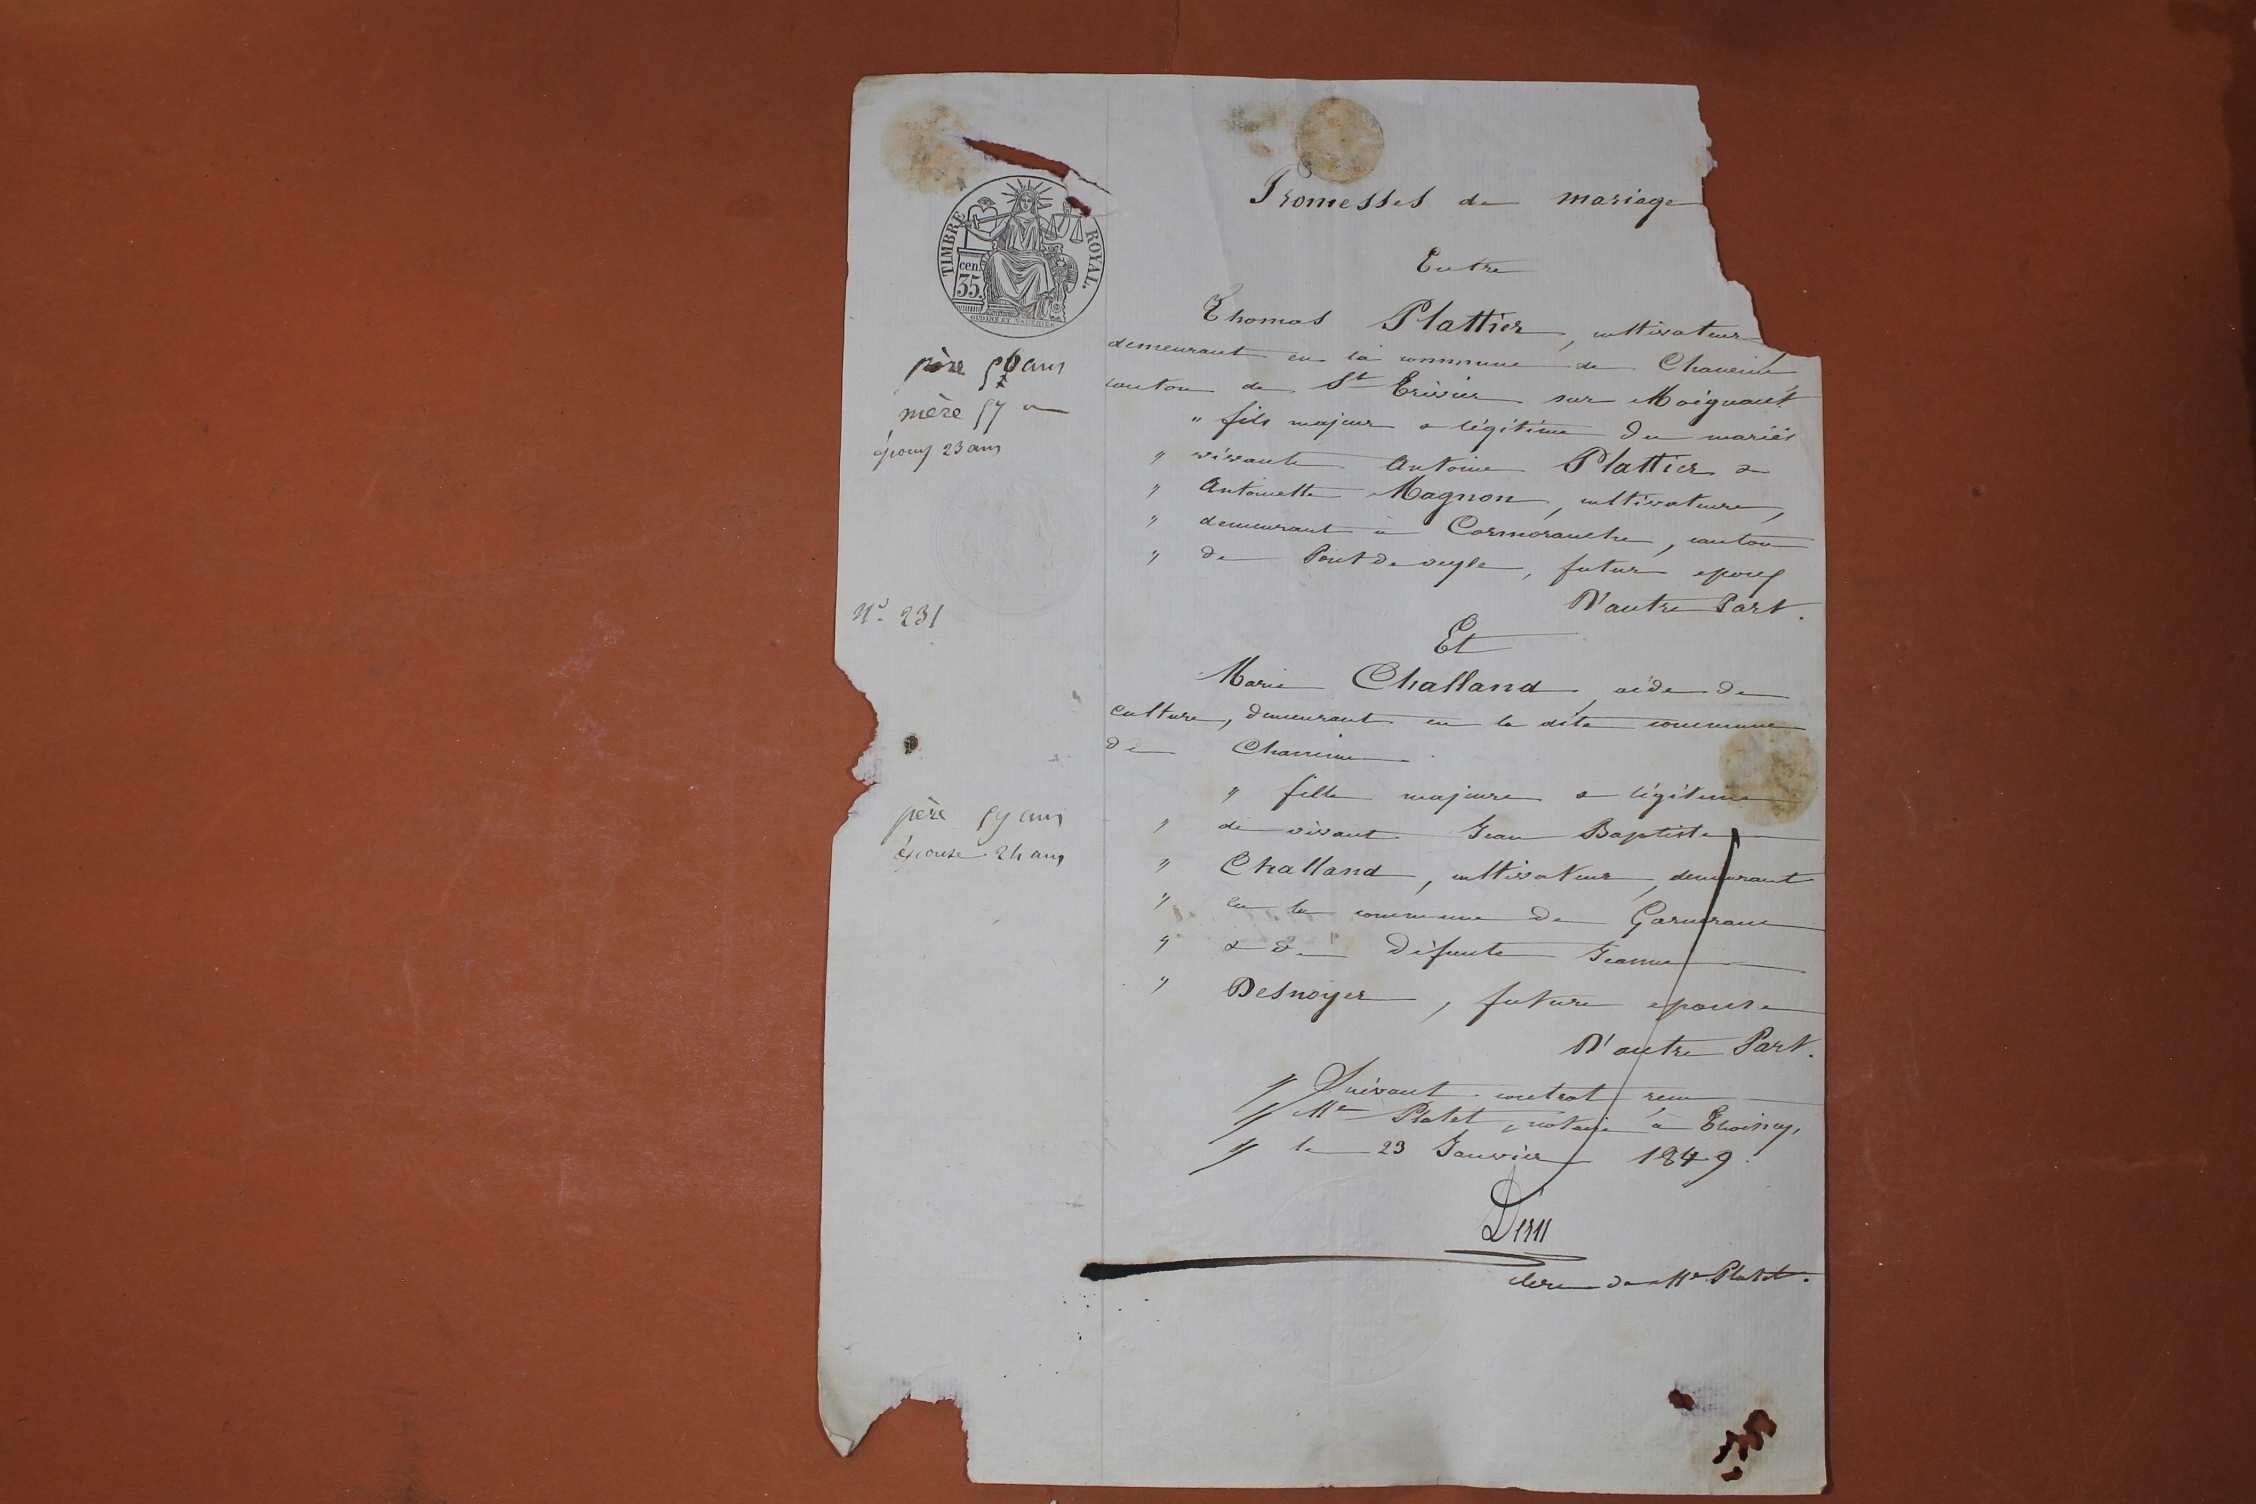 Promesses de mariage
Entre
TIMBRE ROYAL.
cen.
35.
Thomas Plattier, cultivateur
demeurant en la commune de Chaneins
canton de St Trivier sur Moignant
" fils majeur & légitime des mariés
" vivants Antoine Plattier &
" Antoinette Magnon, cultivateurs,
" demeurant à Cormoranche, canton
" de Pont de veyle, futur epoux
D'autre Part.
père ans
mère 57
époux 23 ans
No. 231
Et
Marie Challand, aide de
culture, demeurant en la dite commune
de Chaneins
" fille majeure & légitime
" de vivant Jean Baptiste
" Challand, cultivateur, demeurant
" en la commune de Garnerans
" & de défunte Jeanne
" Desnoyer, future epouse
D'autre Part.
père 59 ans
épouse 24 ans
" Suivant contrat recu
" Me Platet, notaire à Thoissey,
" le 23 Janvier 1849.
clerc de Me Platet.